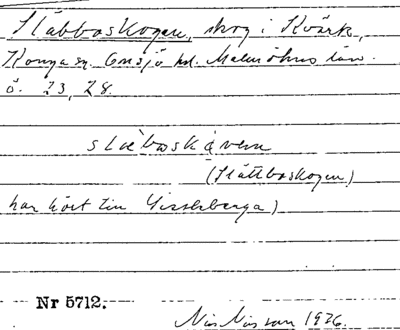 Slättboskogen, skog i Kvärk,
Konga sn. Onsjö hd. Malmöhus län.
ö. 23, 28.
slæboskåven
(Slättboskogen)
har hört till Gissleberga)
Nr 5712.
Nils Nilsson 1926.